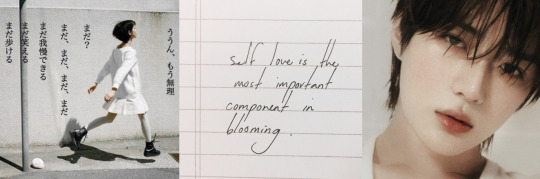 まだ歩ける
まだ笑える
まだ我慢できる
まだ、まだ、まだ、まだ
まだ?
ううん、もう無理
self love is the
most important
component in
blooming.